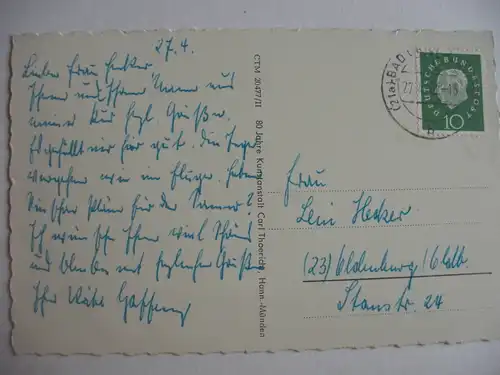 27.4.
Liebe Frau Hecker
Ihnen und Ihrem Mann aus
meiner Kur herzl. Grüße.
Es gefällt mir hier gut. Die Tage
vergehen wie im Fluge. Haben
Sie schon Pläne für den Sommer?
Ich wünsche Ihnen viel
und bleibe mit herzlichen Grüßen
Ihre
CTM 20477/11 80 Jahre Kunstanstalt Carl Thoericht, Hann.-Münden
(21a) BAD
27.
DEUTSCHE BUNDESPOST
10
Frau
Leni Hecker
(23) Oldenburg/Oldb.
Staustr. 24